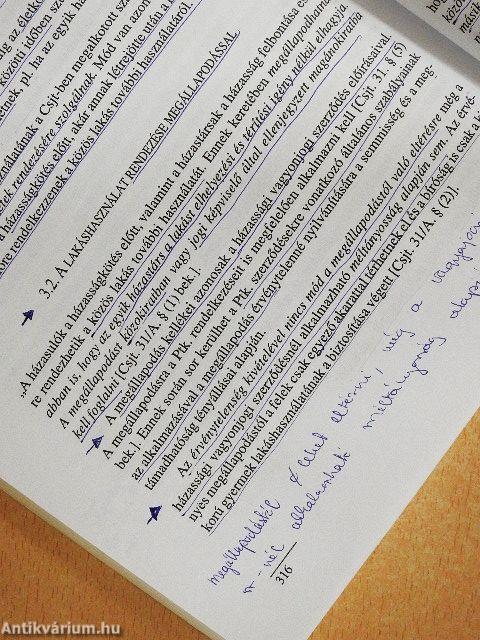 ság az életkö
közöti időben szer
elnek, pl. ha az egyik há
ználatának a Csjt-ben megalkotott sza
elek rendezésére szolgálnak. Mód van azonb
a házasságkötés előtt, akár annak létrejötte után a h
őre rendelkezzenek a közös lakás további használatáról.
3.2. A LAKÁSHASZNÁLAT RENDEZÉSE MEGÁLLAPODÁSSAL
„A házasulók a házasságkötés előtt, valamint a házastársak a házasság felbontása es
re rendezhetik a közös lakás további használatát. Ennek keretében megállapodhatna
abban is, hogy az egyik házastárs a lakást elhelyezési és térítési igény nélkül elhagyja.
A megállapodást közokiratban vagy jogi képviselő által ellenjegyzett magánokiratba
kell foglalni [Csjt. 31/A. § (1) bek.].
A megállapodás kellékei azonosak a házassági vagyonjogi szerződés előírásaival.
A megállapodásra a Ptk. rendelkezéseit is megfelelően alkalmazni kell [Csjt. 31. § (5)
bek.]. Ennek során sor kerülhet a Ptk. szerződésekre vonatkozó általános szabályainak
az alkalmazásával a megállapodás érvénytelenné nyilvánítására a semmisség és a meg-
támadhatóság tényállásai alapján.
Az érvénytelenség kivételével nincs mód a megállapodásról való eltérésre még a
házassági vagyonjogi szerződésnél alkalmazható méltányosság alapján sem. Az érvé-
nyes megállapodástól a felek csak egyező akarattal térhetnek el és a bíróság is csak a k
korú gyermek lakáshasználatának a biztosítása végett [Csjt. 31/A. § (2)].
megállapodástól lehet eltérni, még a vagyonjogi
sz-nél alkalmazható méltányosság alapján
316
Antikvárium.hu